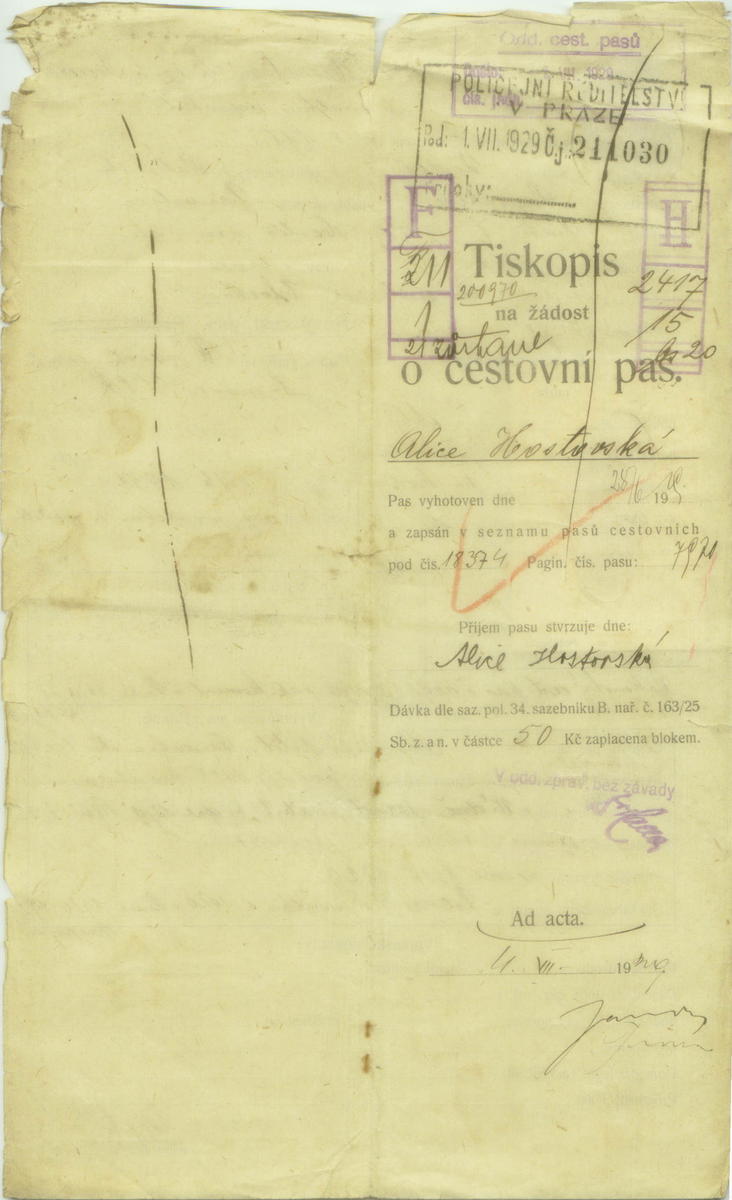 Odd. cest. pasů
POLICEJNÍ ŘEDITELSTVÍ
V PRAZE
Pod: -1. VII. 1929 Č.j. 211030
Přílohy:
H
H
Tiskopis
200970
2417
na žádost
15
o cestovní pas.
Alice Hostovská
Pas vyhotoven dne 28/6 1929
a zapsán v seznamu pasů cestovních
pod čís. 18374 Pagin. čís. pasu: 7970
Příjem pasu stvrzuje dne:
Alice Hostovská
Dávka dle saz. pol. 34. sazebníku B. nař. č. 163/25
Sb. z. a n. v částce 50 Kč zaplacena blokem.
V odd. zpráv. bez závady
Ad acta.
4. VII. 1929.